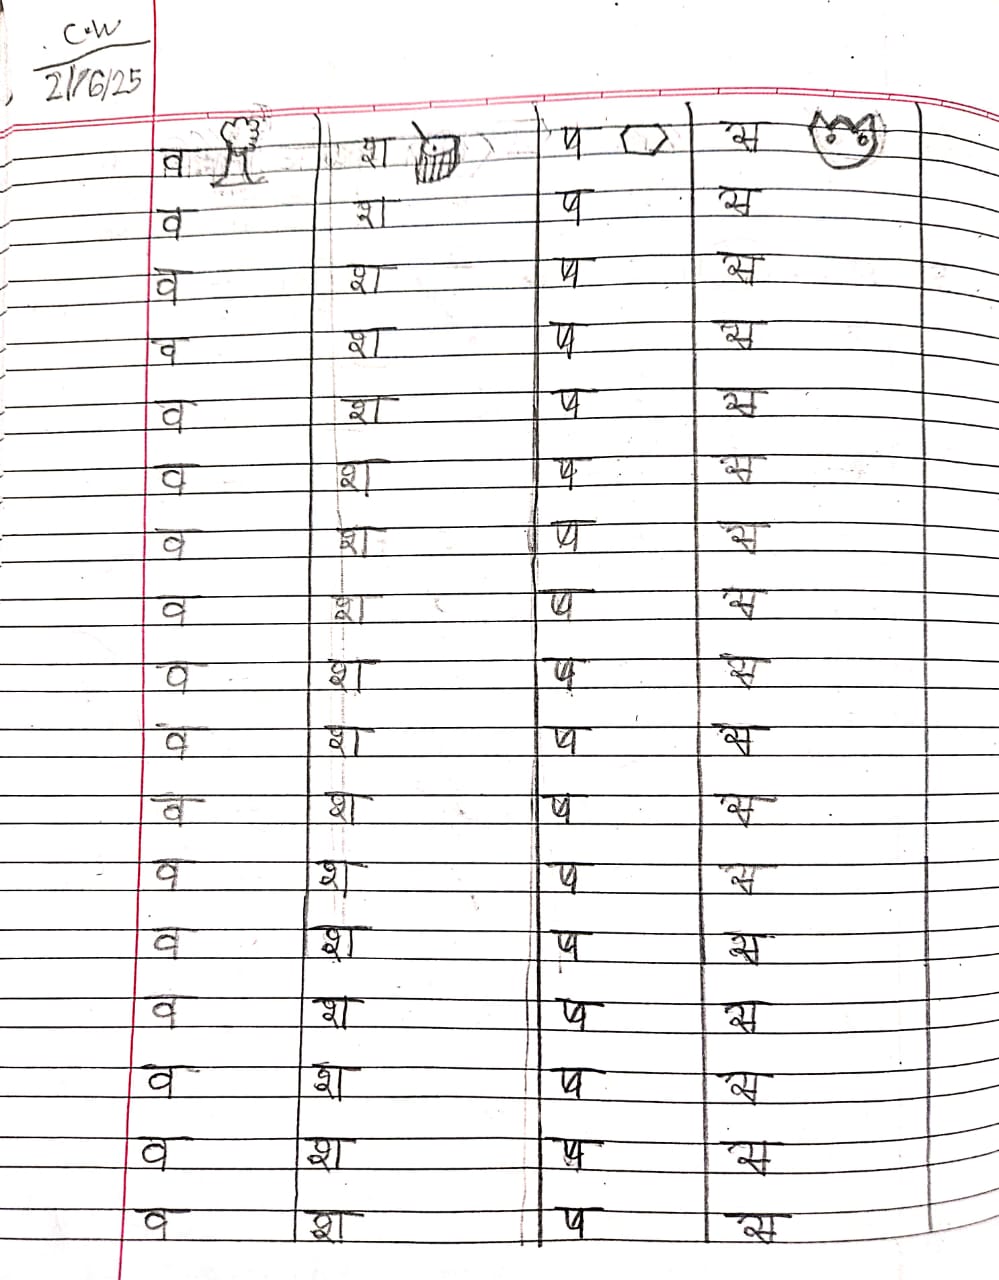 C.W
21/6/25
व श ष स
व श ष स
व श ष स
व श ष स
व श ष स
व श ष स
व श ष स
व श ष स
व श ष स
व श ष स
व श ष स
व श ष स
व श ष स
व श ष स
व श ष स
व श ष स
व श ष स